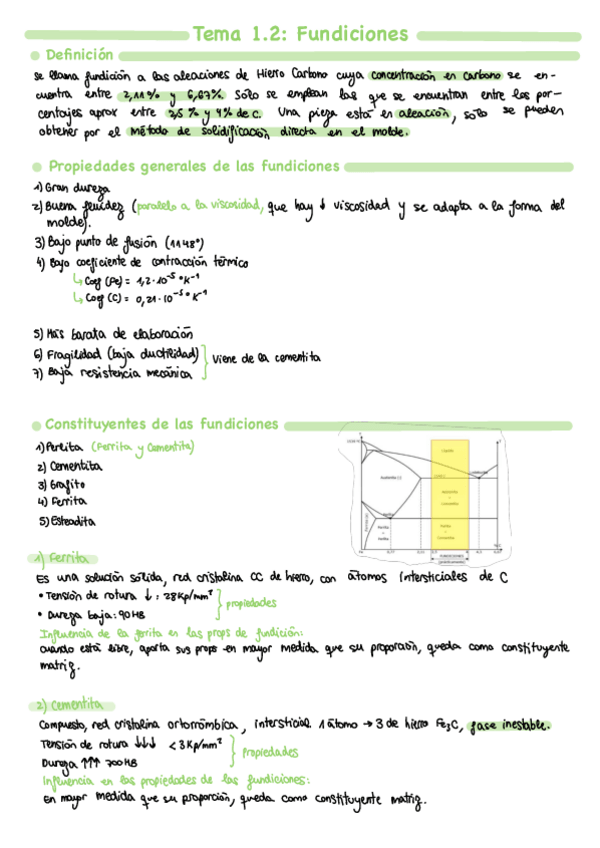 Tema 1.2: Fundiciones
Definición
Se llama fundición a las aleaciones de Hierro Carbono cuya concentración en carbono se en-
cuentra entre 2,11% y 6,67%. Solo se emplean las que se encuentran entre los por-
centajes aprox entre 2,5% y 4% de C. Una pieza está en aleación, solo se pueden
obtener por el método de solidificación directa en el molde.
Propiedades generales de las fundiciones
1) Gran dureza
2) Buena fluidez (paralelo a la viscosidad, que hay ↓ viscosidad y se adapta a la forma del
molde).
3) Bajo punto de fusión (1148°)
4) Bajo coeficiente de contracción térmico
↳ Coef (Fe) = 1,2·10⁻⁵ °K⁻¹
↳ Coef (C) = 0,21·10⁻⁵ °K⁻¹
5) Más barata de elaboración
6) Fragilidad (baja ductilidad)
7) Baja resistencia mecánica
Viene de la cementita
Constituyentes de las fundiciones
1) Perlita (Ferrita y Cementita)
2) Cementita
3) Grafito
4) Ferrita
5) Esteadita
1) Ferrita
Es una solución sólida, red cristalina CC de hierro, con átomos intersticiales de C
• Tensión de rotura ↓: 28Kp/mm²
• Dureza baja: 90HB
propiedades
Influencia de la ferrita en las props de fundición:
cuando está libre, aporta sus props en mayor medida que su proporción, queda como constituyente
matriz.
2) Cementita
Compuesto, red cristalina ortorrómbica, intersticial 1 átomo → 3 de hierro Fe₃C, fase inestable.
Tensión de rotura ↓↓↓ <3Kp/mm²
Dureza ↑↑↑ 700HB
propiedades
Influencia en las propiedades de las fundiciones:
En mayor medida que su proporción, queda como constituyente matriz.